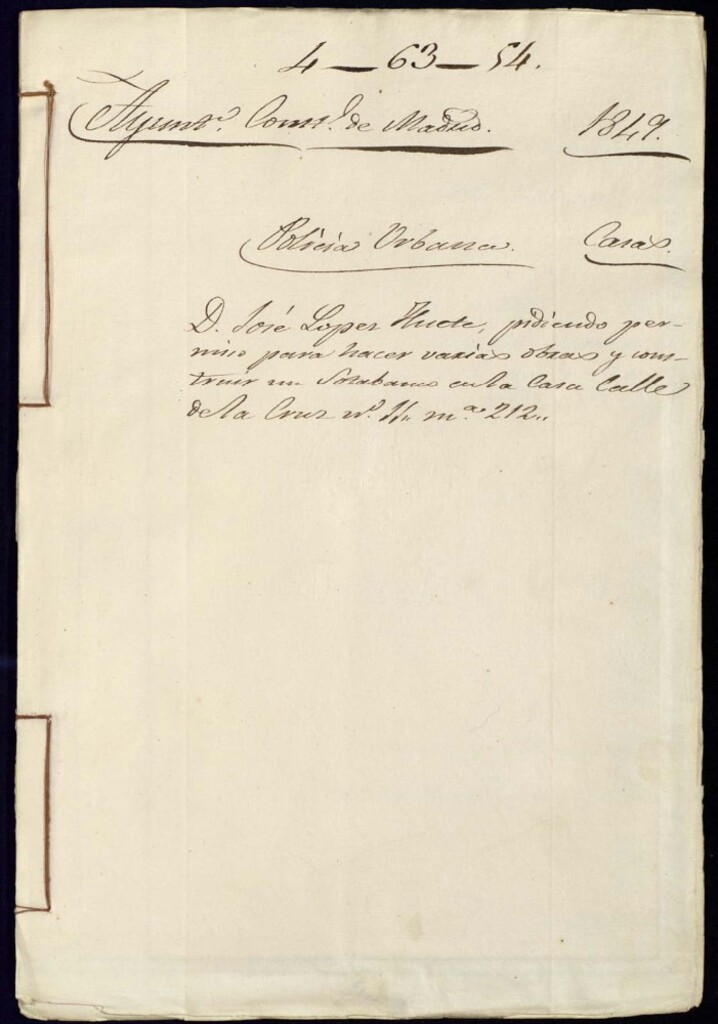 4—63—54.
Ayuntº. Constl. de Madrid. 1849.
Policia Urbana. Casas.
D. José Lopez Huete, pidiendo per-
miso para hacer varias obras y cons-
truir un Sotabanco en la Casa Calle
de la Cruz nº. 11 mª. 212..